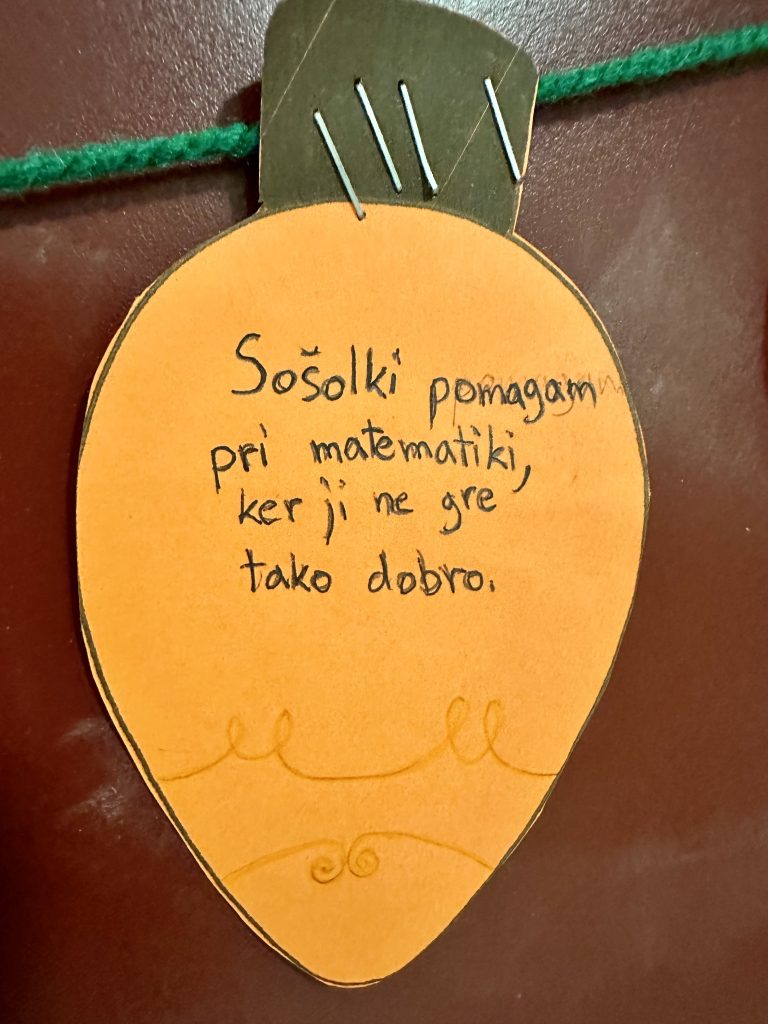 Sošolki pomagam
pri matematiki,
ker ji ne gre
tako dobro.